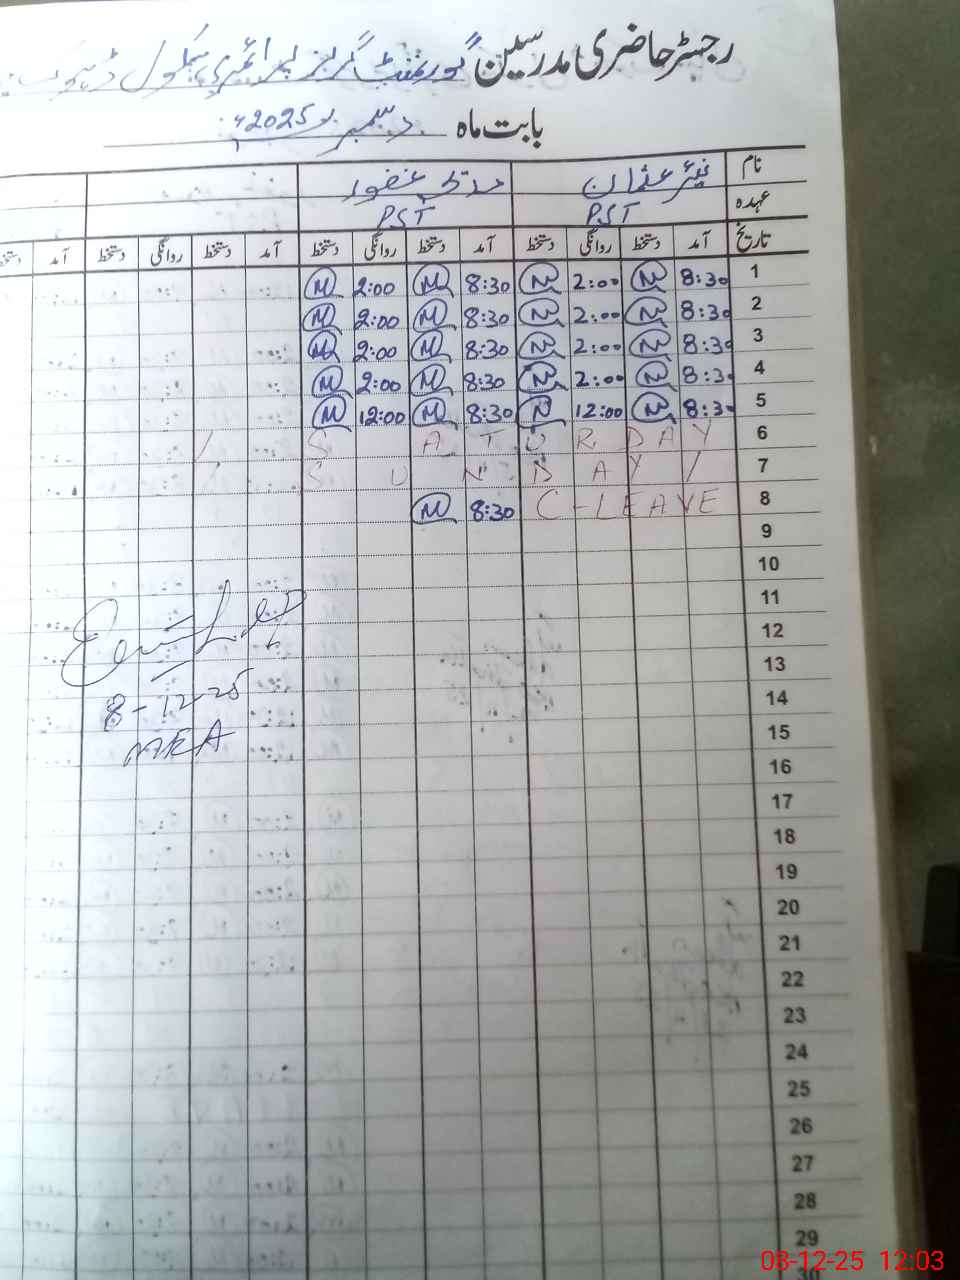 رجسٹر حاضری مدرسین گورنمنٹ گرلز پرائمری سکول
بابت ماہ دسمبر 2025ء
نام نیئر عثمان غفور
عہدہ PST PST
تاریخ آمد دستخط روانگی دستخط آمد دستخط روانگی دستخط آمد دستخط روانگی دستخط آمد دستخط
1 8:30 N 2:00 N 8:30 M 2:00 M
2 8:30 N 2:00 N 8:30 M 2:00 M
3 8:30 N 2:00 N 8:30 M 2:00 M
4 8:30 N 2:00 N 8:30 M 2:00 M
5 8:30 N 12:00 N 8:30 M 12:00 M
6 / SATURDAY
7 SUNDAY /
8 C-LEAVE 8:30 M
9
10
11
12
13
14
15
16
17
18
19
20
21
22
23
24
25
26
27
28
29
30
8-12-25
MEA
08-12-25 12:03